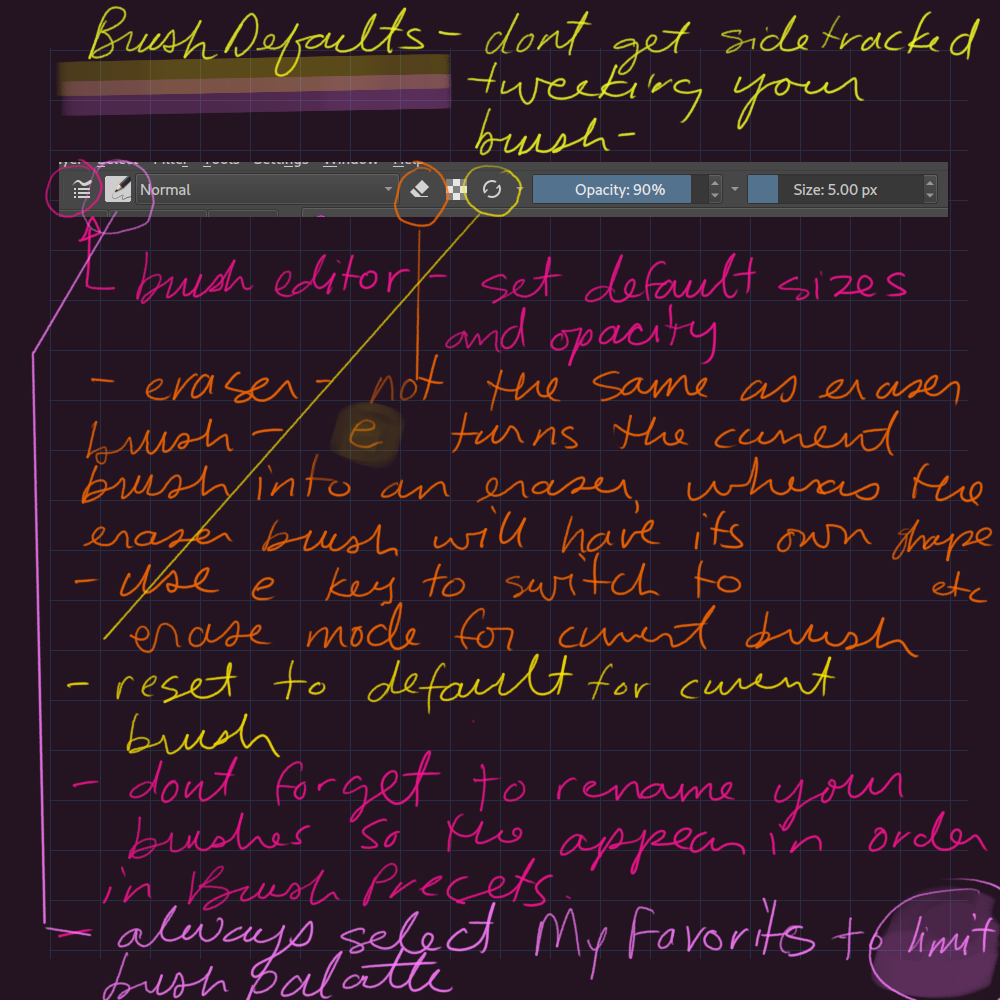 Brush Defaults - dont get sidetracked
tweeking your
brush-
Normal Opacity: 90% Size: 5.00 px
brush editor - set default sizes
and opacity
- eraser - not the same as eraser
brush - e turns the current
brush into an eraser, wheras the
eraser brush will have its own shape
etc
- use e key to switch to
erase mode for current brush
- reset to default for current
brush
- dont forget to rename your
brushes so the appear in order
in Brush Precets.
- always select My Favorits to limit
bush palatte